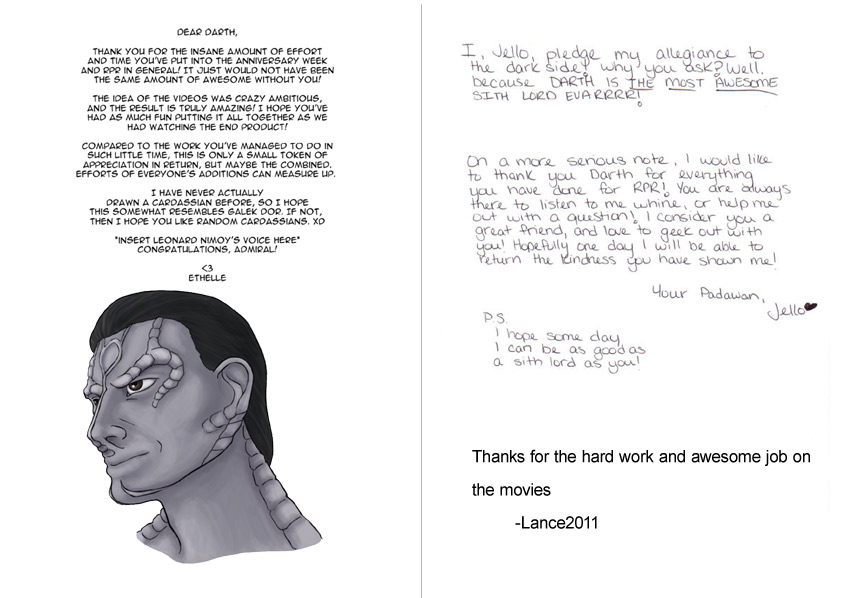 DEAR DARTH,
THANK YOU FOR THE INSANE AMOUNT OF EFFORT
AND TIME YOU'VE PUT INTO THE ANNIVERSARY WEEK
AND RPR IN GENERAL! IT JUST WOULD NOT HAVE BEEN
THE SAME AMOUNT OF AWESOME WITHOUT YOU!
THE IDEA OF THE VIDEOS WAS CRAZY AMBITIOUS,
AND THE RESULT IS TRULY AMAZING! I HOPE YOU'VE
HAD AS MUCH FUN PUTTING IT ALL TOGETHER AS WE
HAD WATCHING THE END PRODUCT!
COMPARED TO THE WORK YOU'VE MANAGED TO DO IN
SUCH LITTLE TIME, THIS IS ONLY A SMALL TOKEN OF
APPRECIATION IN RETURN, BUT MAYBE THE COMBINED
EFFORTS OF EVERYONE'S ADDITIONS CAN MEASURE UP.
I HAVE NEVER ACTUALLY
DRAWN A CARDASSIAN BEFORE, SO I HOPE
THIS SOMEWHAT RESEMBLES GALEK DOR. IF NOT,
THEN I HOPE YOU LIKE RANDOM CARDASSIANS. XD
*INSERT LEONARD NIMOY'S VOICE HERE*
CONGRATULATIONS, ADMIRAL!
<3
ETHELLE
I, Jello, pledge my allegiance to
the dark side! Why you ask? Well,
because DARTH IS THE MOST AWESOME
SITH LORD EVARRRR!
On a more serious note, I would like
to thank you Darth for everything
you have done for RPR! You are always
there to listen to me whine, or help me
out with a question! I consider you a
great friend, and love to geek out with
you! Hopefully one day I will be able to
return the kindness you have shown me!
Your Padawan,
Jello
P.S.
I hope some day
I can be as good as
a sith lord as you!
Thanks for the hard work and awesome job on
the movies
-Lance2011